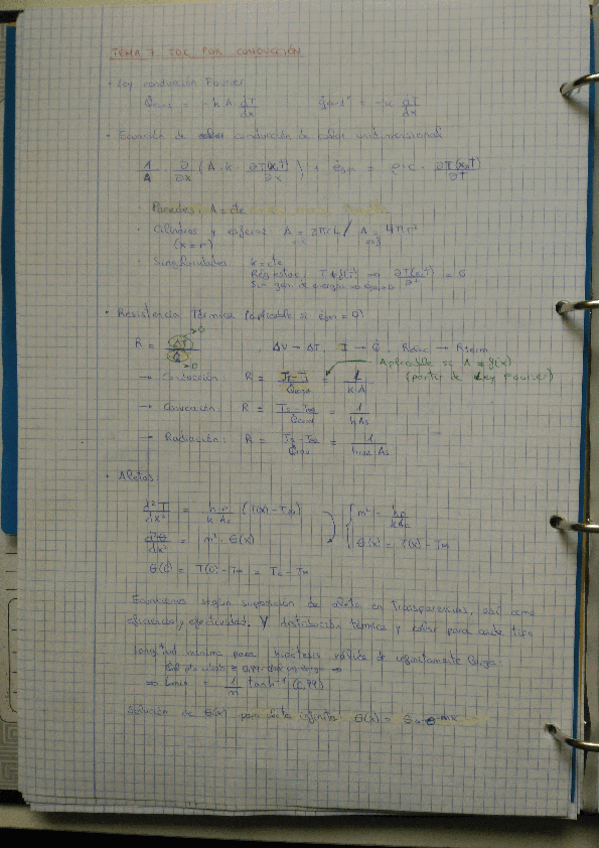 TEMA 7. TDC POR CONDUCCIÓN
• Ley conducción Fourier
Q̇cond = -k A dT/dx   q̇cond" = -k dT/dx
• Ecuación de conducción de calor unidimensional
1/A · ∂/∂x (A · k · ∂T(x,t)/∂x) + ėgen = ρ · c · ∂T(x,t)/∂t
· Paredes: A = cte
· Cilindros y esferas A = 2πrL / A = 4πr²
(x = r)
· Singularidades: k = cte
Rég. estac. T ≠ f(t) → ∂T(x,t)/∂t = 0
Sin gen. de energía → ėgen = 0
• Resistencia Térmica (aplicable si ėgen = 0)
R = ΔT/Q̇ >0 >0   ΔV → ΔT, I → Q̇, → Rterm
Aplicable si A ≠ f(x)
(parte de Ley Fourier)
→ Conducción: R = / Q̇cond = L/kA
→ Convección: R = Ts - T∞ / = 1/hAs
→ Radiación: R = / = 1/ As
• Aletas:
d²T/dx² = h·p/kAc (T(x) - T∞)   m² = hp/kAc
d²θ/dx² = m² · θ(x)   θ(x) = T(x) - T∞
θ(0) = T(0) - T∞ =
Ecuaciones según suposición de aleta en Transparencias, así como
eficiencia y efectividad. Y distribución térmica y calor para cada tipo
Longitud mínima para hipótesis válida de infinitamente larga
⇒ Lmin = 1/m tanh⁻¹ (0,99)
Solución de θ(x) para aleta infinita θ(x) = θ₀·e^-mx